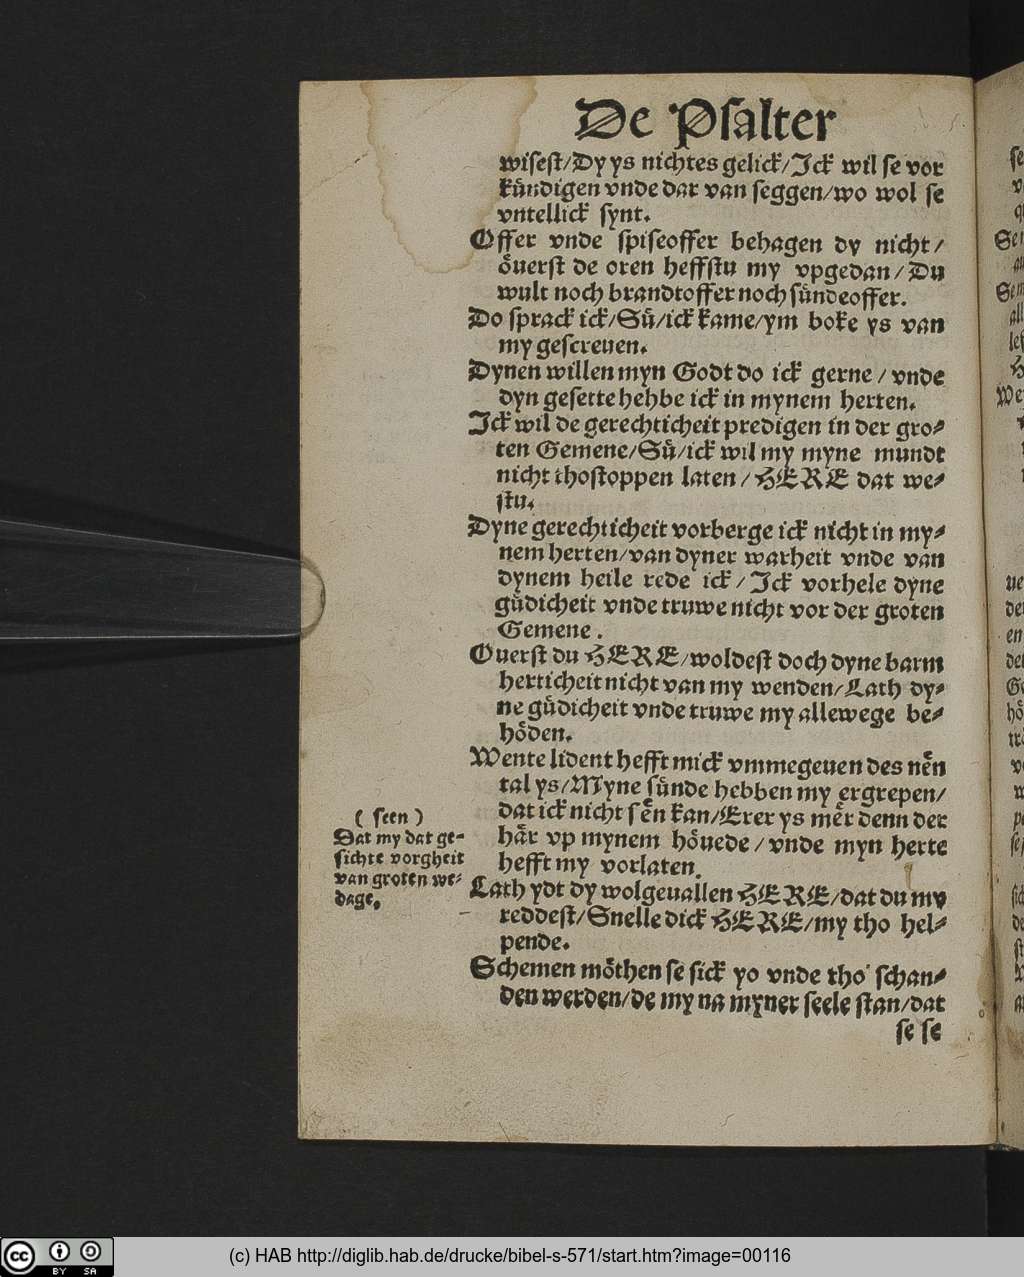 De Psalter
wisest/Dy ys nichtes gelick/Ick wil se vor
ku᷑ndigen vnde dar van seggen/wo wol se
vntellick synt.
Offer vnde spiseoffer behagen dy nicht/
oͤuerst de oren heffstu my vpgedan/Du
wult noch brandtoffer noch suͤndeoffer.
Do sprack ick/Suͤ/ick kame/ym boke ys van
my gescreuen.
Dynen willen myn Godt do ick gerne/vnde
dyn gesette hebbe ick in mynem herten.
Ick wil de gerechticheit predigen in der gro-
ten Gemene/Suͤ/ick wil my myne mundt
nicht thostoppen laten/HERE dat we-
stu.
Dyne gerechticheit vorberge ick nicht in my-
nem herten/van dyner warheit vnde van
dynem heile rede ick/Ick vorhele dyne
guͤdicheit vnde truwe nicht vor der groten
Gemene.
Ouerst du HERE/woldest doch dyne barm
herticheit nicht van my wenden/Lath dy-
ne guͤdicheit vnde truwe my allewege be-
hoͤden.
Wente lident hefft mick vmmegeuen des neͤn
tal ys/Myne suͤnde hebben my ergrepen/
dat ick nicht seͤn kan/Erer ys meͤr denn der
haͤr vp mynem hoͤuede/vnde myn herte
hefft my vorlaten.
( seen )
Dat my dat ge-
sichte vorgheit
van groten we-
dage.
Lath ydt dy wolgeuallen HERE/dat du my
reddest/Snelle dick HERE/my tho hel-
pende.
Schemen moͤthen se sick yo vnde tho schan-
den werden/de my na myner seele stan/dat
se se
(c) HAB http://diglib.hab.de/drucke/bibel-s-571/start.htm?image=00116
cc
BY SA